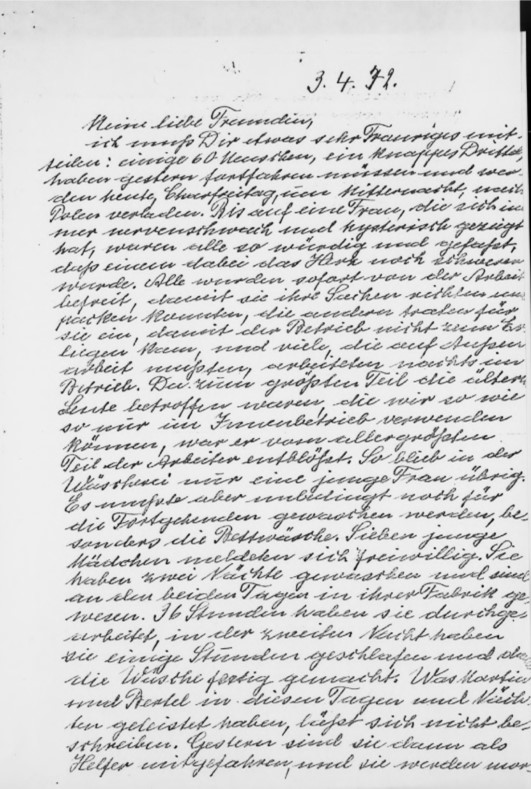 3. 4. 42.
Meine liebe Freundin,
ich muß Dir etwas sehr Trauriges mit-
teilen: einige 60 Menschen, ein knappes Drittel
haben gestern fortfahren müssen und wer-
den heute, Charfreitag, um Mitternacht, nach
Polen verladen. Bis auf eine Frau, die sich im
mer nervenschwach und hysterisch gezeigt
hat, waren alle so würdig und gefasst,
daß einem dabei das Herz noch schwerer
wurde. Alle wurden sofort von der Arbeit
befreit, damit sie ihre Sachen richten und
packen konnten, die andern traten für
sie ein, damit der Betrieb nicht zum Er-
liegen kam, und viele, die auf Außen
arbeit mußten, arbeiteten nachts im
Betrieb. Da zum größten Teil die ältern
Leute betroffen waren, die wir so wie
so nur im Innenbetrieb verwenden
können, war er vom allergrößten
Teil der Arbeiter entblößt. So blieb in der
Wäscherei nur eine junge Frau übrig.
Es mußte aber unbedingt noch für
die Fortgehenden gewaschen werden, be-
sonders die Bettwäsche. Sieben junge
Mädchen meldeten sich freiwillig. Sie
haben zwei Nächte gewaschen und sind
an den beiden Tagen in ihrer Fabrik ge
wesen. 36 Stunden haben sie durchge-
arbeitet, in der zweiten Nacht haben
sie einige Stunden geschlafen und
die Wäsche fertig gemacht. Was
und Bertel in diesen Tagen und Näch-
ten geleistet haben, läßt sich nicht be-
schreiben. Gestern sind sie dann als
Helfer mitgefahren, und sie werden mor